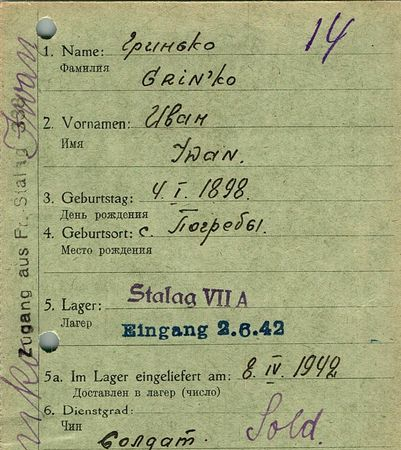 14
1. Name: Гринько
Фамилия
GRIN'ko
2. Vornamen: Иван
Имя
Iwan.
3. Geburtstag: 4. I. 1898.
День рождения
4. Geburtsort: с. Погребы.
Место рождения
5. Lager: Stalag VII A
Лагер
Eingang 2.6.42
5a. Im Lager eingeliefert am: 8. IV. 1942
Доставлен в лагер (число)
6. Dienstgrad:
Чин
Солдат. Sold.
Zugang aus Fr. Stalag
Iwan